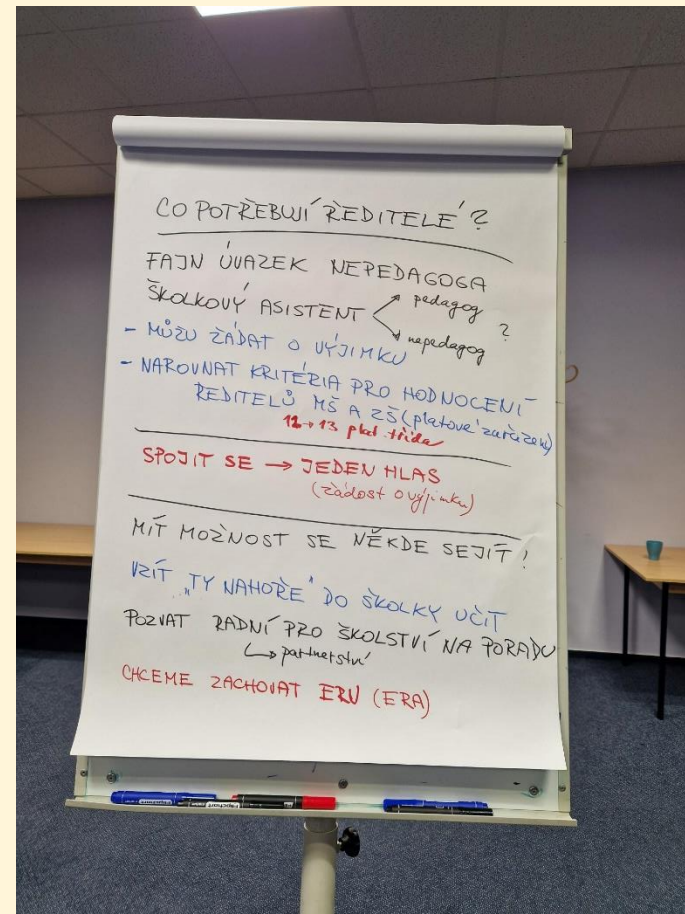 CO POTŘEBUJÍ ŘEDITELÉ?
FAJN ÚVAZEK NEPEDAGOGA
ŠKOLKOVÝ ASISTENT pedagog
nepedagog ?
- MŮŽU ŽÁDAT O VÝJIMKU
- NAROVNAT KRITÉRIA PRO HODNOCENÍ
ŘEDITELŮ MŠ A ZŠ (platové zařazení)
12→13 plat. třída
SPOJIT SE → JEDEN HLAS
(žádost o výjimku)
MÍT MOŽNOST SE NĚKDE SEJÍT!
VZÍT „TY NAHOŘE" DO ŠKOLKY UČIT
POZVAT RADNÍ PRO ŠKOLSTVÍ NA PORADU
↳ partnerství
CHCEME ZACHOVAT ERU (ERA)